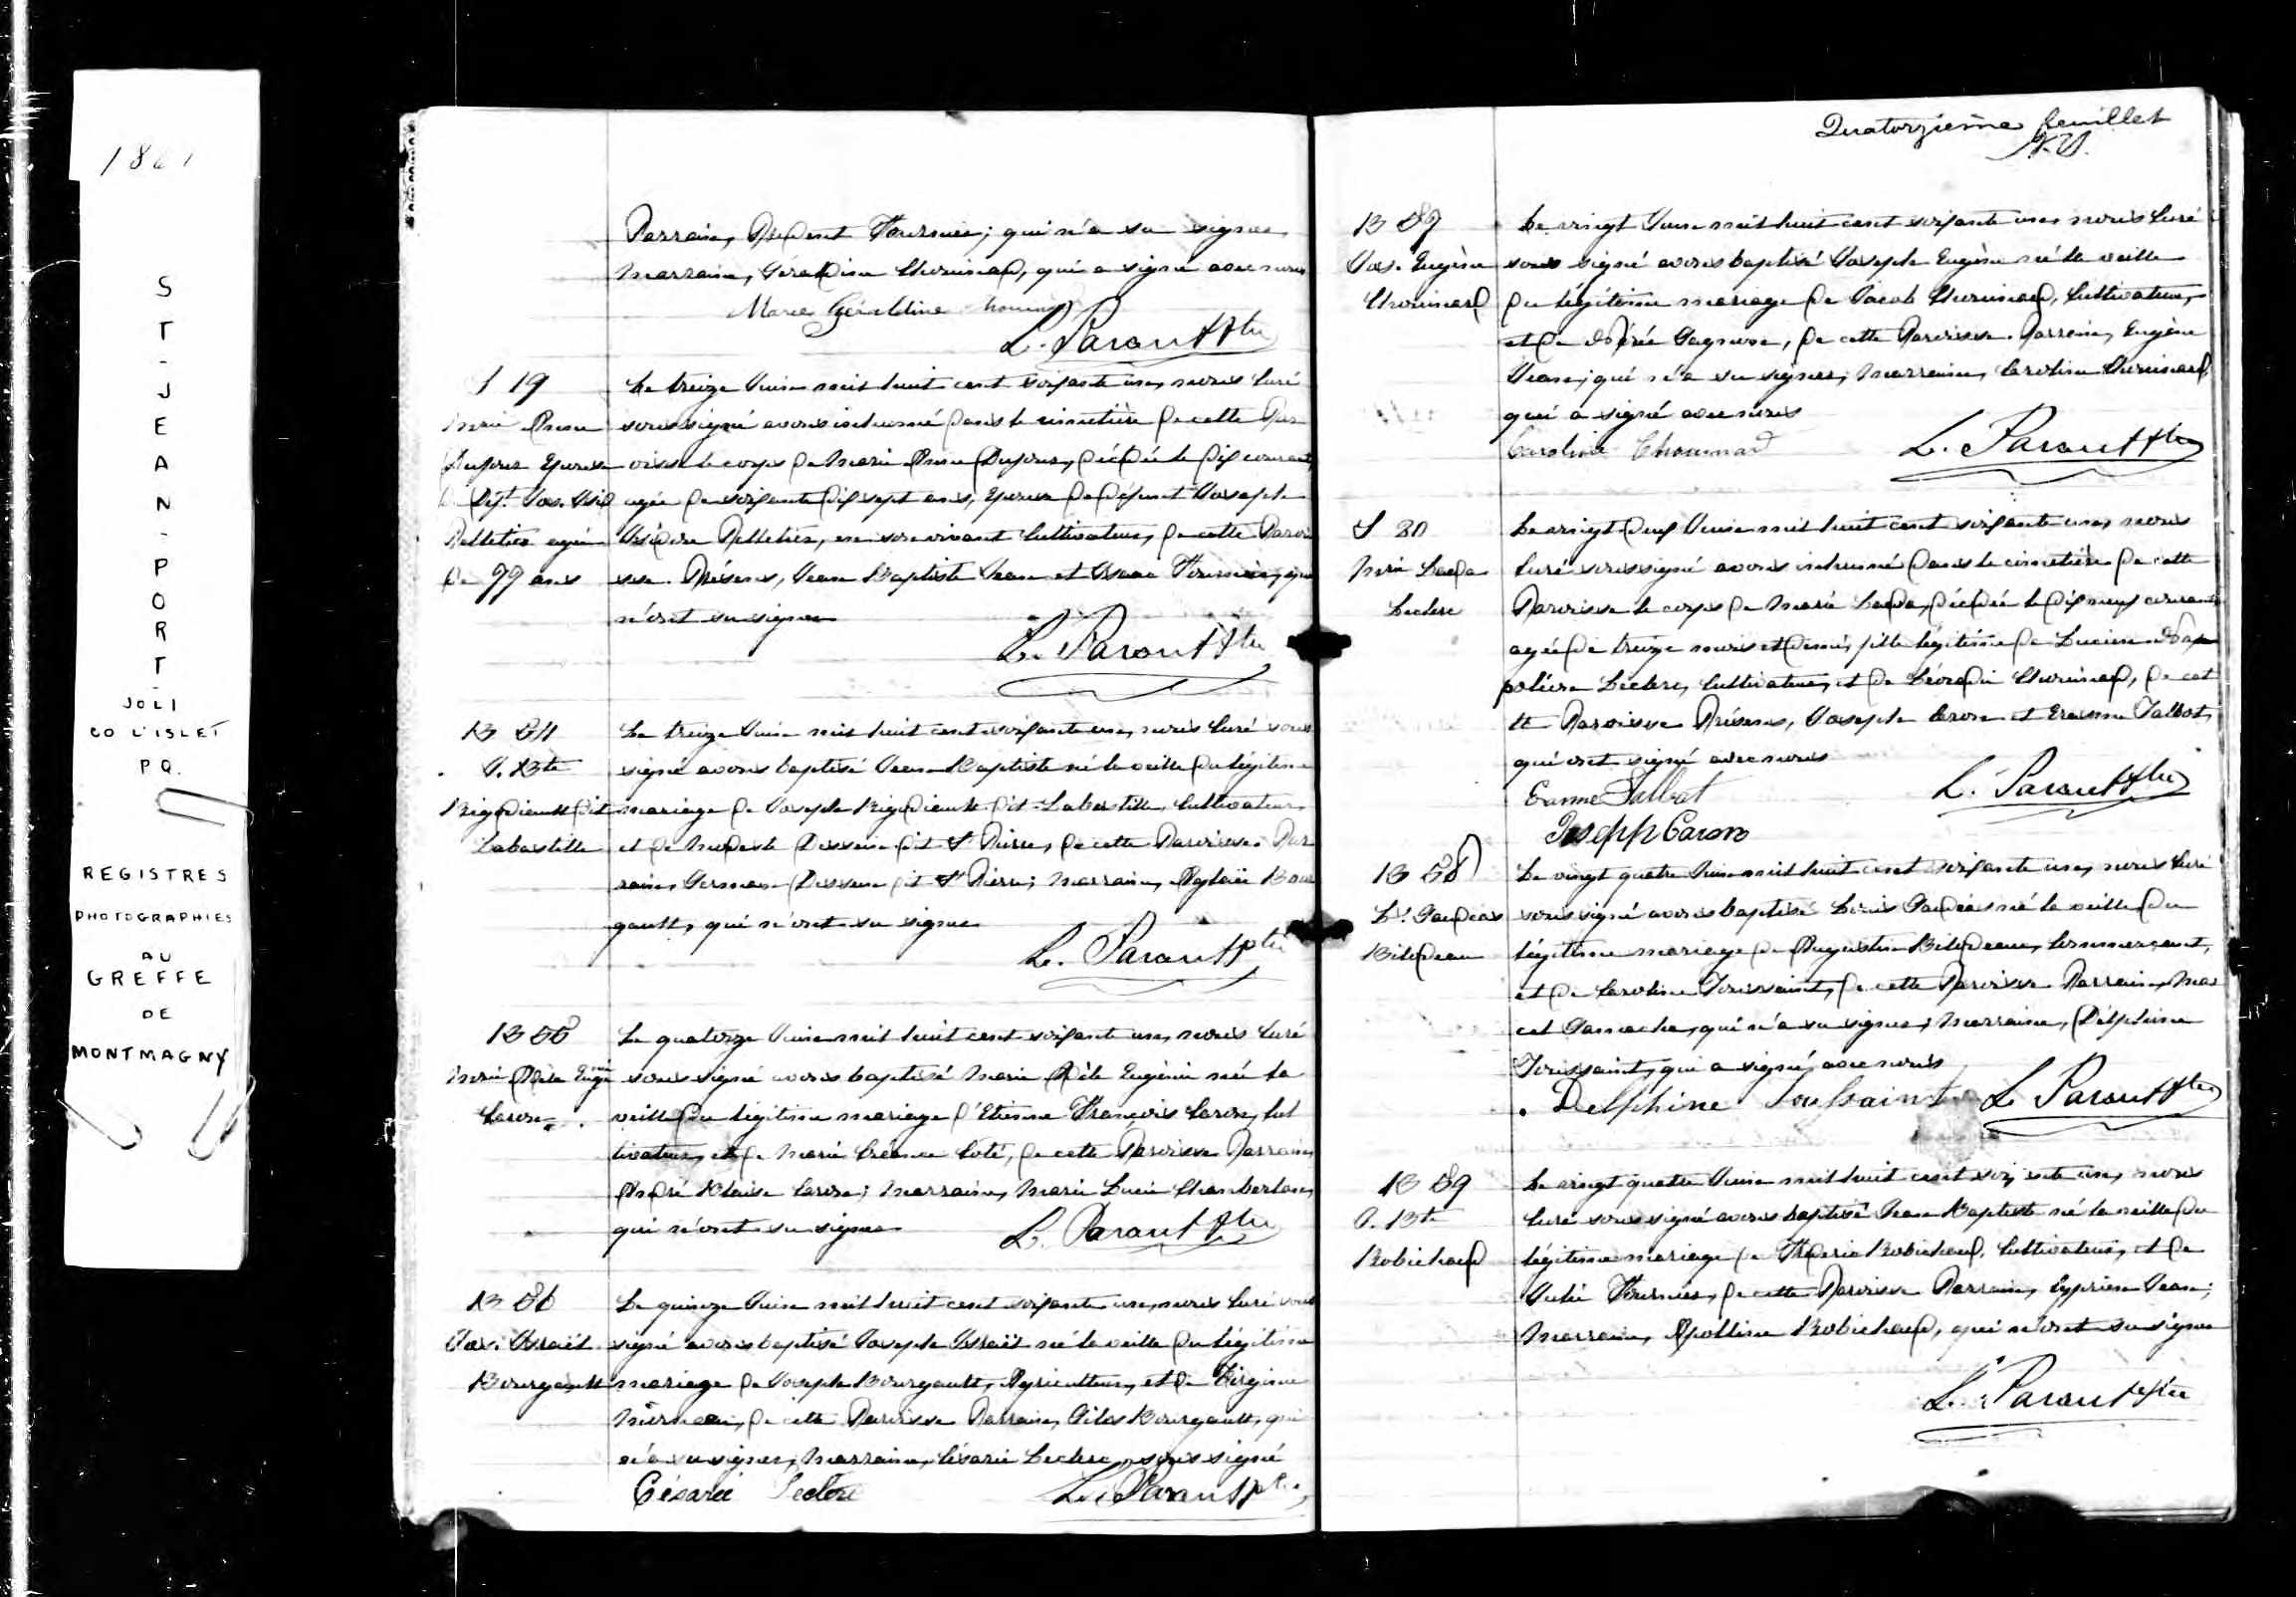 186
S
T
-
J
E
A
N
-
P
O
R
T
-
JOLI
CO L'ISLET
P Q.
REGISTRES
PHOTOGRAPHIES
AU
GREFFE
DE
MONTMAGNY
Parrain, Fournier; qui n'a su signer
Marraine, Géraldine Chouinard, qui a signé avec nous
Marie Géraldine
L. Parant Ptre
S 19
Marie
Dufour Epouse
Jos.
Pelletier agée
de 77 ans
Le treize Juin mil huit cent soixante un, nous Curé
soussigné avons inhumé dans le cimetière de cette Par
oisse le corps de Marie Dufour, décédée le dix courant
agée de soixante dix sept ans, Epouse de défunt Joseph
Pelletier, en son vivant Cultivateur, de cette Parois
sse. Présens, Jean Baptiste Jean et Isaac Fournier, qui
n'ont su signer
L. Parant Ptre
B 54
J. Bte
dit
Labastille
Le treize Juin mil huit cent soixante un, nous Curé sous
signé avons baptisé Jean Baptiste né la veille du légitime
mariage de Joseph dit Labastille, Cultivateur
et de Modeste Dessein dit St Pierre, de cette Paroisse. Par
rain, Germain Dessein dit St Pierre; Marraine, Bour
gault, qui n'ont su signer
L. Parant Ptre
B 55
Marie Adèle Eugénie
Caron
Le quatorze Juin mil huit cent soixante un, nous Curé
soussigné avons baptisé Marie Adèle Eugénie née la
veille du légitime mariage d'Etienne François Caron, Cul
tivateur, et de Marie Coté, de cette Paroisse. Parrain,
André Blaise Caron; Marraine, Marie Lucie Chamberlan,
qui n'ont su signer
L. Parant Ptre
B 56
Jos. Israël
Bourgault
Le quinze Juin mil huit cent soixante un, nous Curé sous
signé avons baptisé Joseph Israël né la veille du légitime
mariage de Joseph Bourgault, Agriculteur, et de Virginie
de cette Paroisse. Parrain, Bourgault, qui
n'a su signer; Marraine, Césarie Leclerc, signé
Césarie Leclerc
L. Parant Ptre
Quatorzième feuillet
B 57
Jos. Eugène
Chouinard
Le vingt Juin mil huit cent soixante un, nous Curé
sous signé avons baptisé Joseph Eugène né la veille
du légitime mariage de Jacob Chouinard, Cultivateur,
et de Désirée Gagnon, de cette Paroisse. Parrain, Eugène
Jean; qui n'a su signer; Marraine, Caroline Chouinard
qui a signé avec nous
Caroline Chouinard
L. Parant Ptre
S 20
Marie Leda
Leclerc
Le vingt deux Juin mil huit cent soixante un, nous
Curé soussigné avons inhumé dans le cimetière de cette
Paroisse le corps de Marie Leda, décédée le dix neuf courant
agée de treize mois et demi, fille légitime de Lucien Na
poléon Leclerc, Cultivateur, et de Chouinard, de cet
te Paroisse Présens, Joseph Caron et Talbot,
qui ont signé avec nous
Talbot
L. Parant Ptre
Joseph Caron
B 58
Bilodeau
Le vingt quatre Juin mil huit cent soixante un, nous Curé
soussigné avons baptisé Louis né la veille du
légitime mariage de Augustin Bilodeau, Commerçant,
et de Caroline Toussaint, de cette Paroisse Parrain, Mar
cel Gamache, qui n'a su signer; Marraine, Delphine
Toussaint, qui a signé avec nous
Delphine Toussaint
L Parant Ptre
B 59
J. Bte
Robichaud
Le vingt quatre Juin mil huit cent soixante un, nous
Curé sous signé avons baptisé Jean Baptiste né la veille du
légitime mariage de Robichaud, Cultivateur, et de
Julie Fournier, de cette Paroisse Parrain, Cyprien Jean;
Marraine, Apolline Robichaud, qui n'ont su signer
L. Parant Ptre